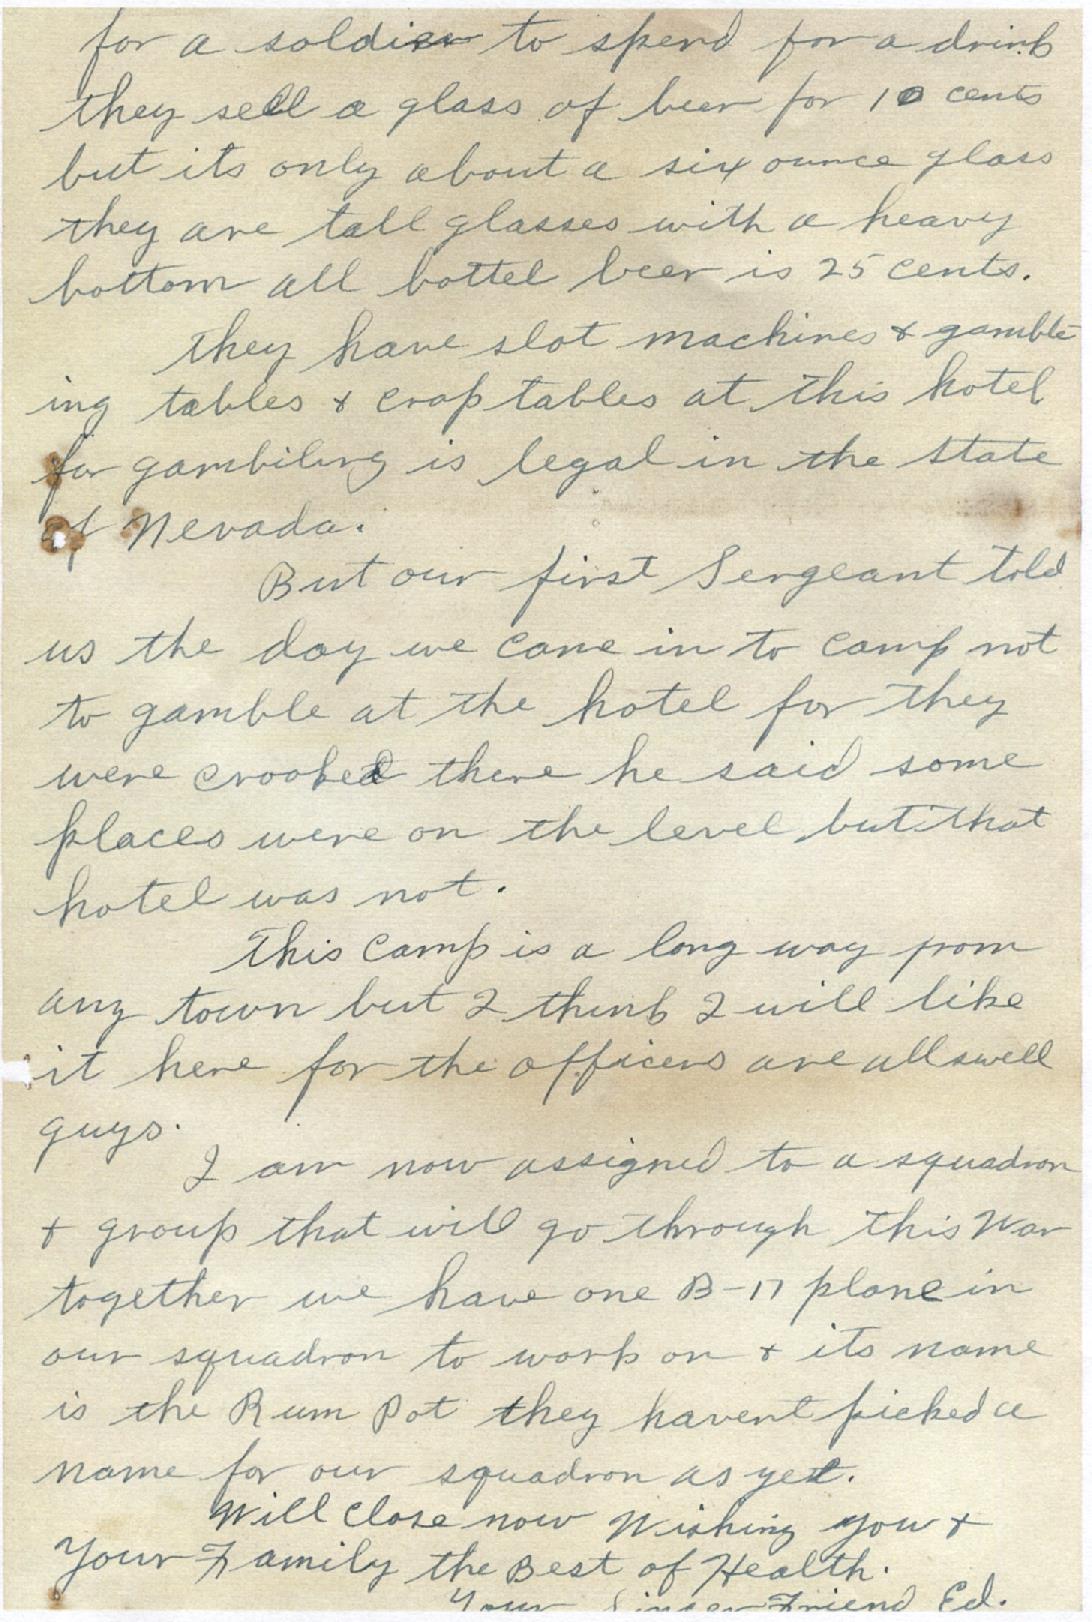 for a soldier to spend for a drink
they sell a glass of beer for 10 cents
but its only about a six ounce glass
they are tall glasses with a heavy
bottom all bottel beer is 25 cents.
They have slot machines & gamble-
ing tables & crap tables at this hotel
for gambiling is legal in the state
of Nevada.
But our first Sergeant told
us the day we came in to camp not
to gamble at the hotel for they
were crooked there he said some
places were on the level but that
hotel was not.
This camp is a long way from
any town but I think I will like
it here for the officers are all swell
guys.
I am now assigned to a squadron
& group that will go through this War
together we have one B-17 plane in
our squadron to work on & its name
is the Rum Pot they havent picked a
name for our squadron as yet.
Will close now Wishing you &
Your Family the Best of Health.
Your Friend Ed.